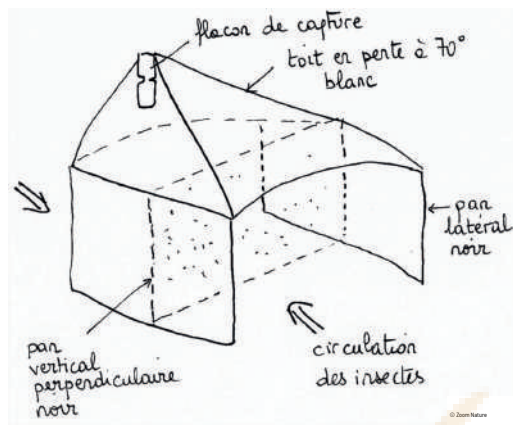 flacon de capture
toit en pente à 70°
blanc
pan
latéral
noir
pan
vertical
perpendiculaire
noir
circulation
des insectes
© Zoom Nature